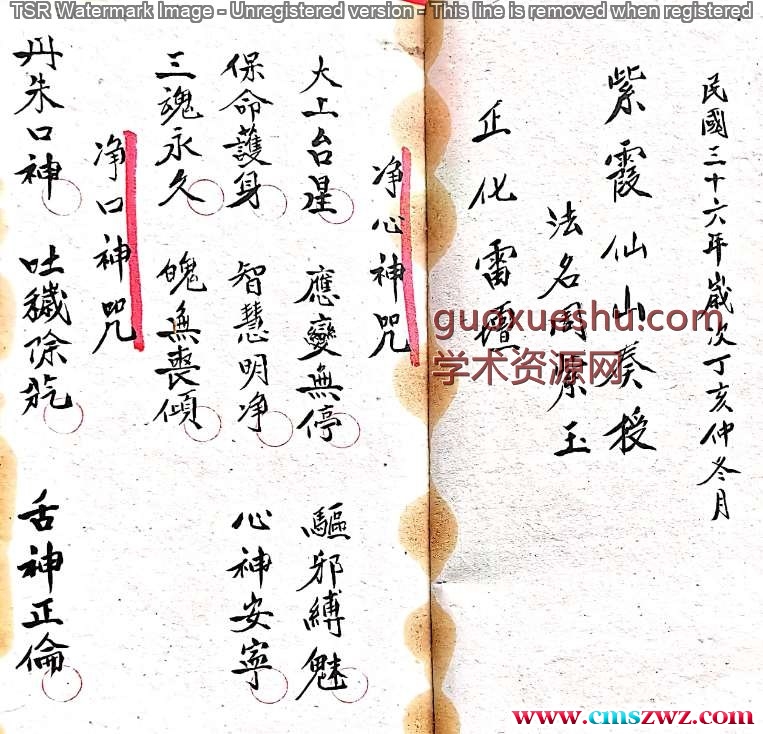 TSR Watermark Image - Unregistered version - This line is removed when registered
民國三十六年歲次丁亥仲冬月
紫霞仙山奏授
法名周玉
正化雷壇
净心神咒
大上台星 應變無停 驅邪縛魅
保命護身 智慧明净 心神安寧
三魂永久 魄無喪傾
净口神咒
丹朱口神 吐穢除 舌神正倫
guoxueshu.com
学术资源网
www.cmszwz.com